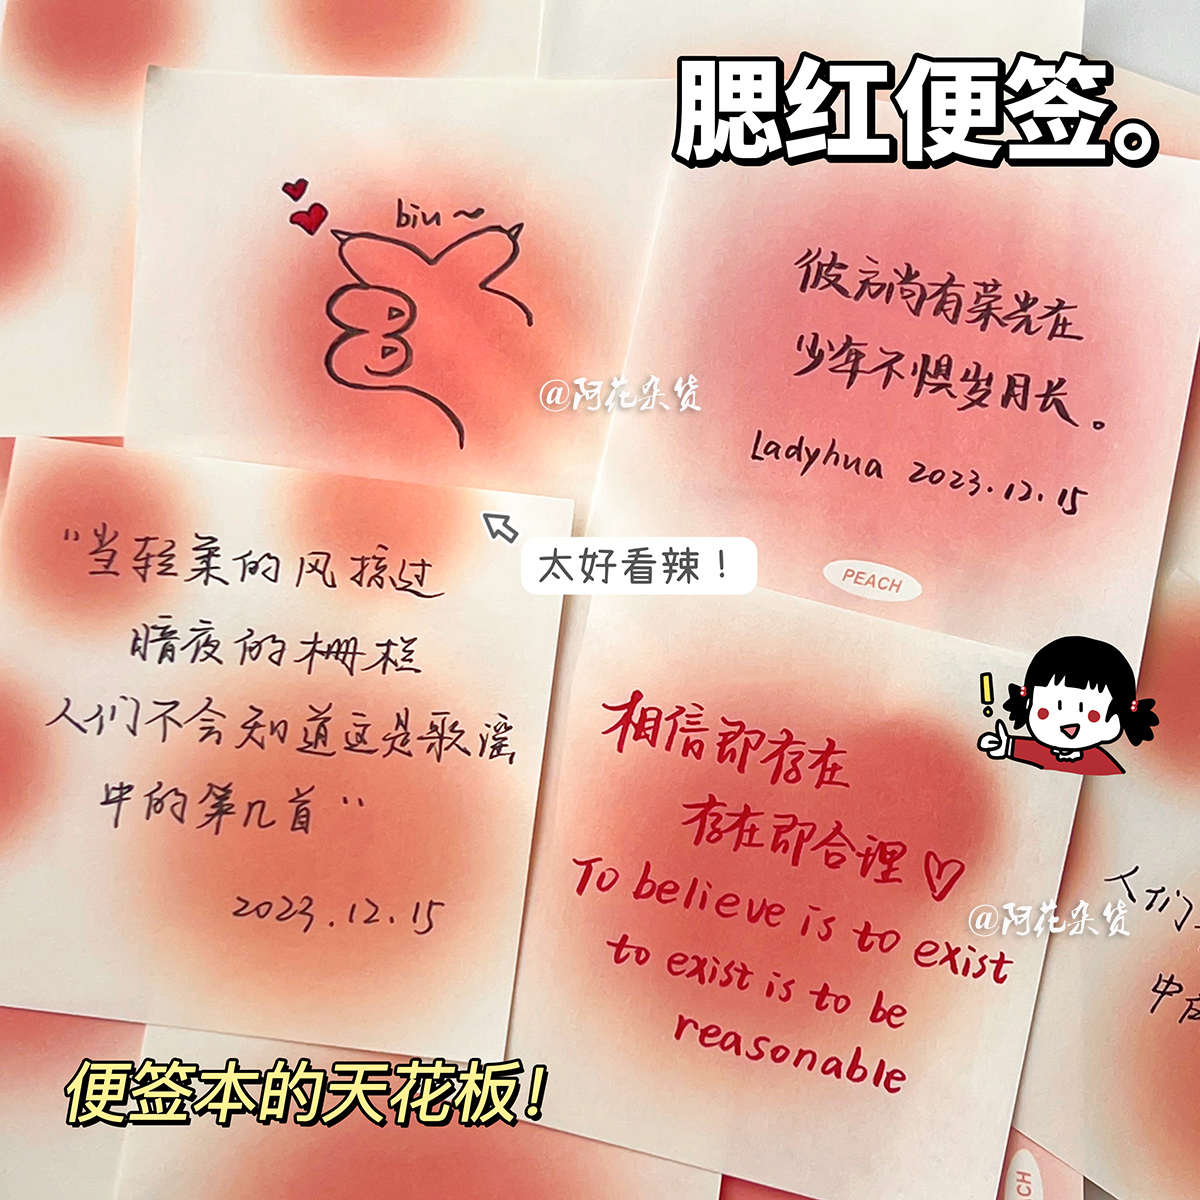 腮红便签。
biu~
彼方尚有荣光在
少年不惧岁月长。
Ladyhua 2023.12.15
@阿花杂货
PEACH
太好看辣！
"当轻柔的风掠过
暗夜的栅栏
人们不会知道这是歌谣
中的第几首"
2023.12.15
!
相信即存在
存在即合理♡
To believe is to exist
to exist is to be
reasonable
@阿花杂货
人们
中的
便签本的天花板！
CH